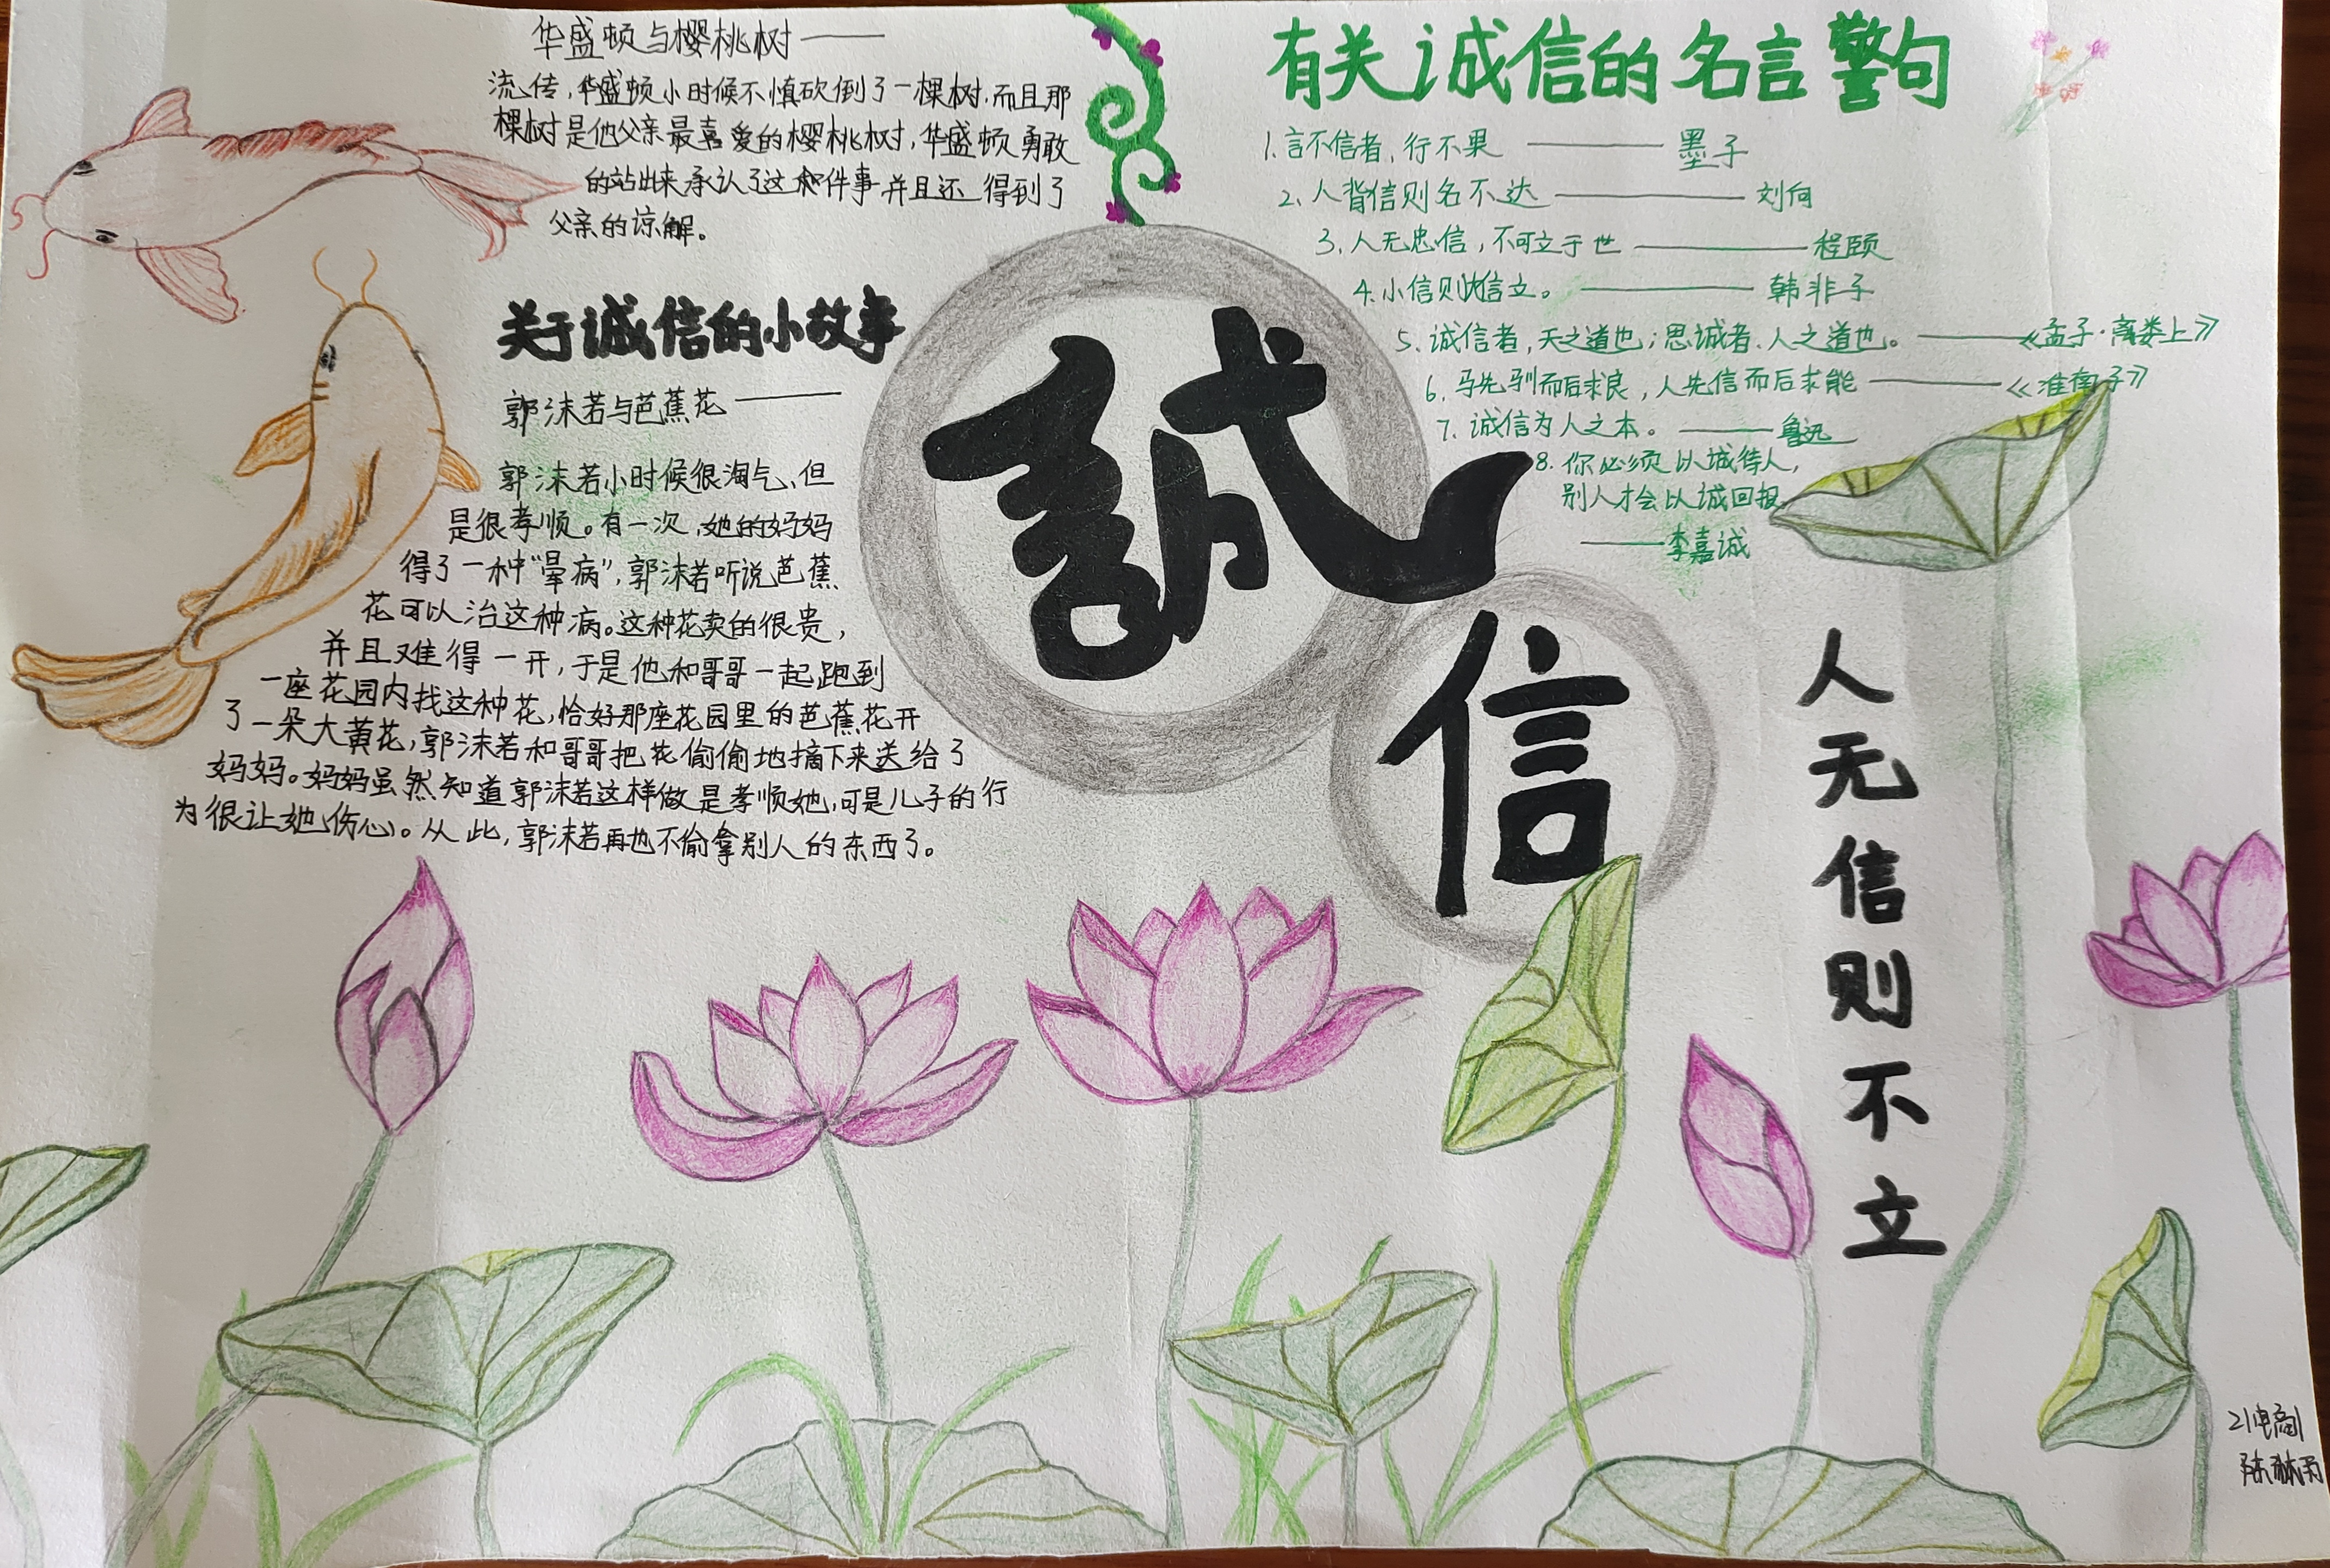 华盛顿与樱桃树——
流传,华盛顿小时候不慎砍倒了一棵树,而且那
棵树是他父亲最喜爱的樱桃树,华盛顿勇敢
的站出来承认了这件事并且还得到了
父亲的谅解。
关于诚信的小故事
郭沫若与芭蕉花——
郭沫若小时候很淘气,但
是很孝顺。有一次,她的妈妈
得了一种“晕病”,郭沫若听说芭蕉
花可以治这种病。这种花卖的很贵,
并且难得一开,于是他和哥哥一起跑到
一座花园内找这种花,恰好那座花园里的芭蕉花开
了一朵大黄花,郭沫若和哥哥把花偷偷地摘下来送给了
妈妈。妈妈虽然知道郭沫若这样做是孝顺她,可是儿子的行
为很让她伤心。从此,郭沫若再也不偷拿别人的东西了。
誠
信
有关诚信的名言警句
1.言不信者,行不果——墨子
2、人背信则名不达——刘向
3.人无忠信,不可立于世——程颐
4.小信则大信立。——韩非子
5.诚信者,天之道也;思诚者、人之道也。——《孟子·离娄上》
6.马先驯而后求良,人先信而后求能——《淮南子》
7.诚信为人之本。——鲁迅
8.你必须以诚待人,
别人才会以诚回报
——李嘉诚
人
无
信
则
不
立
21电商1